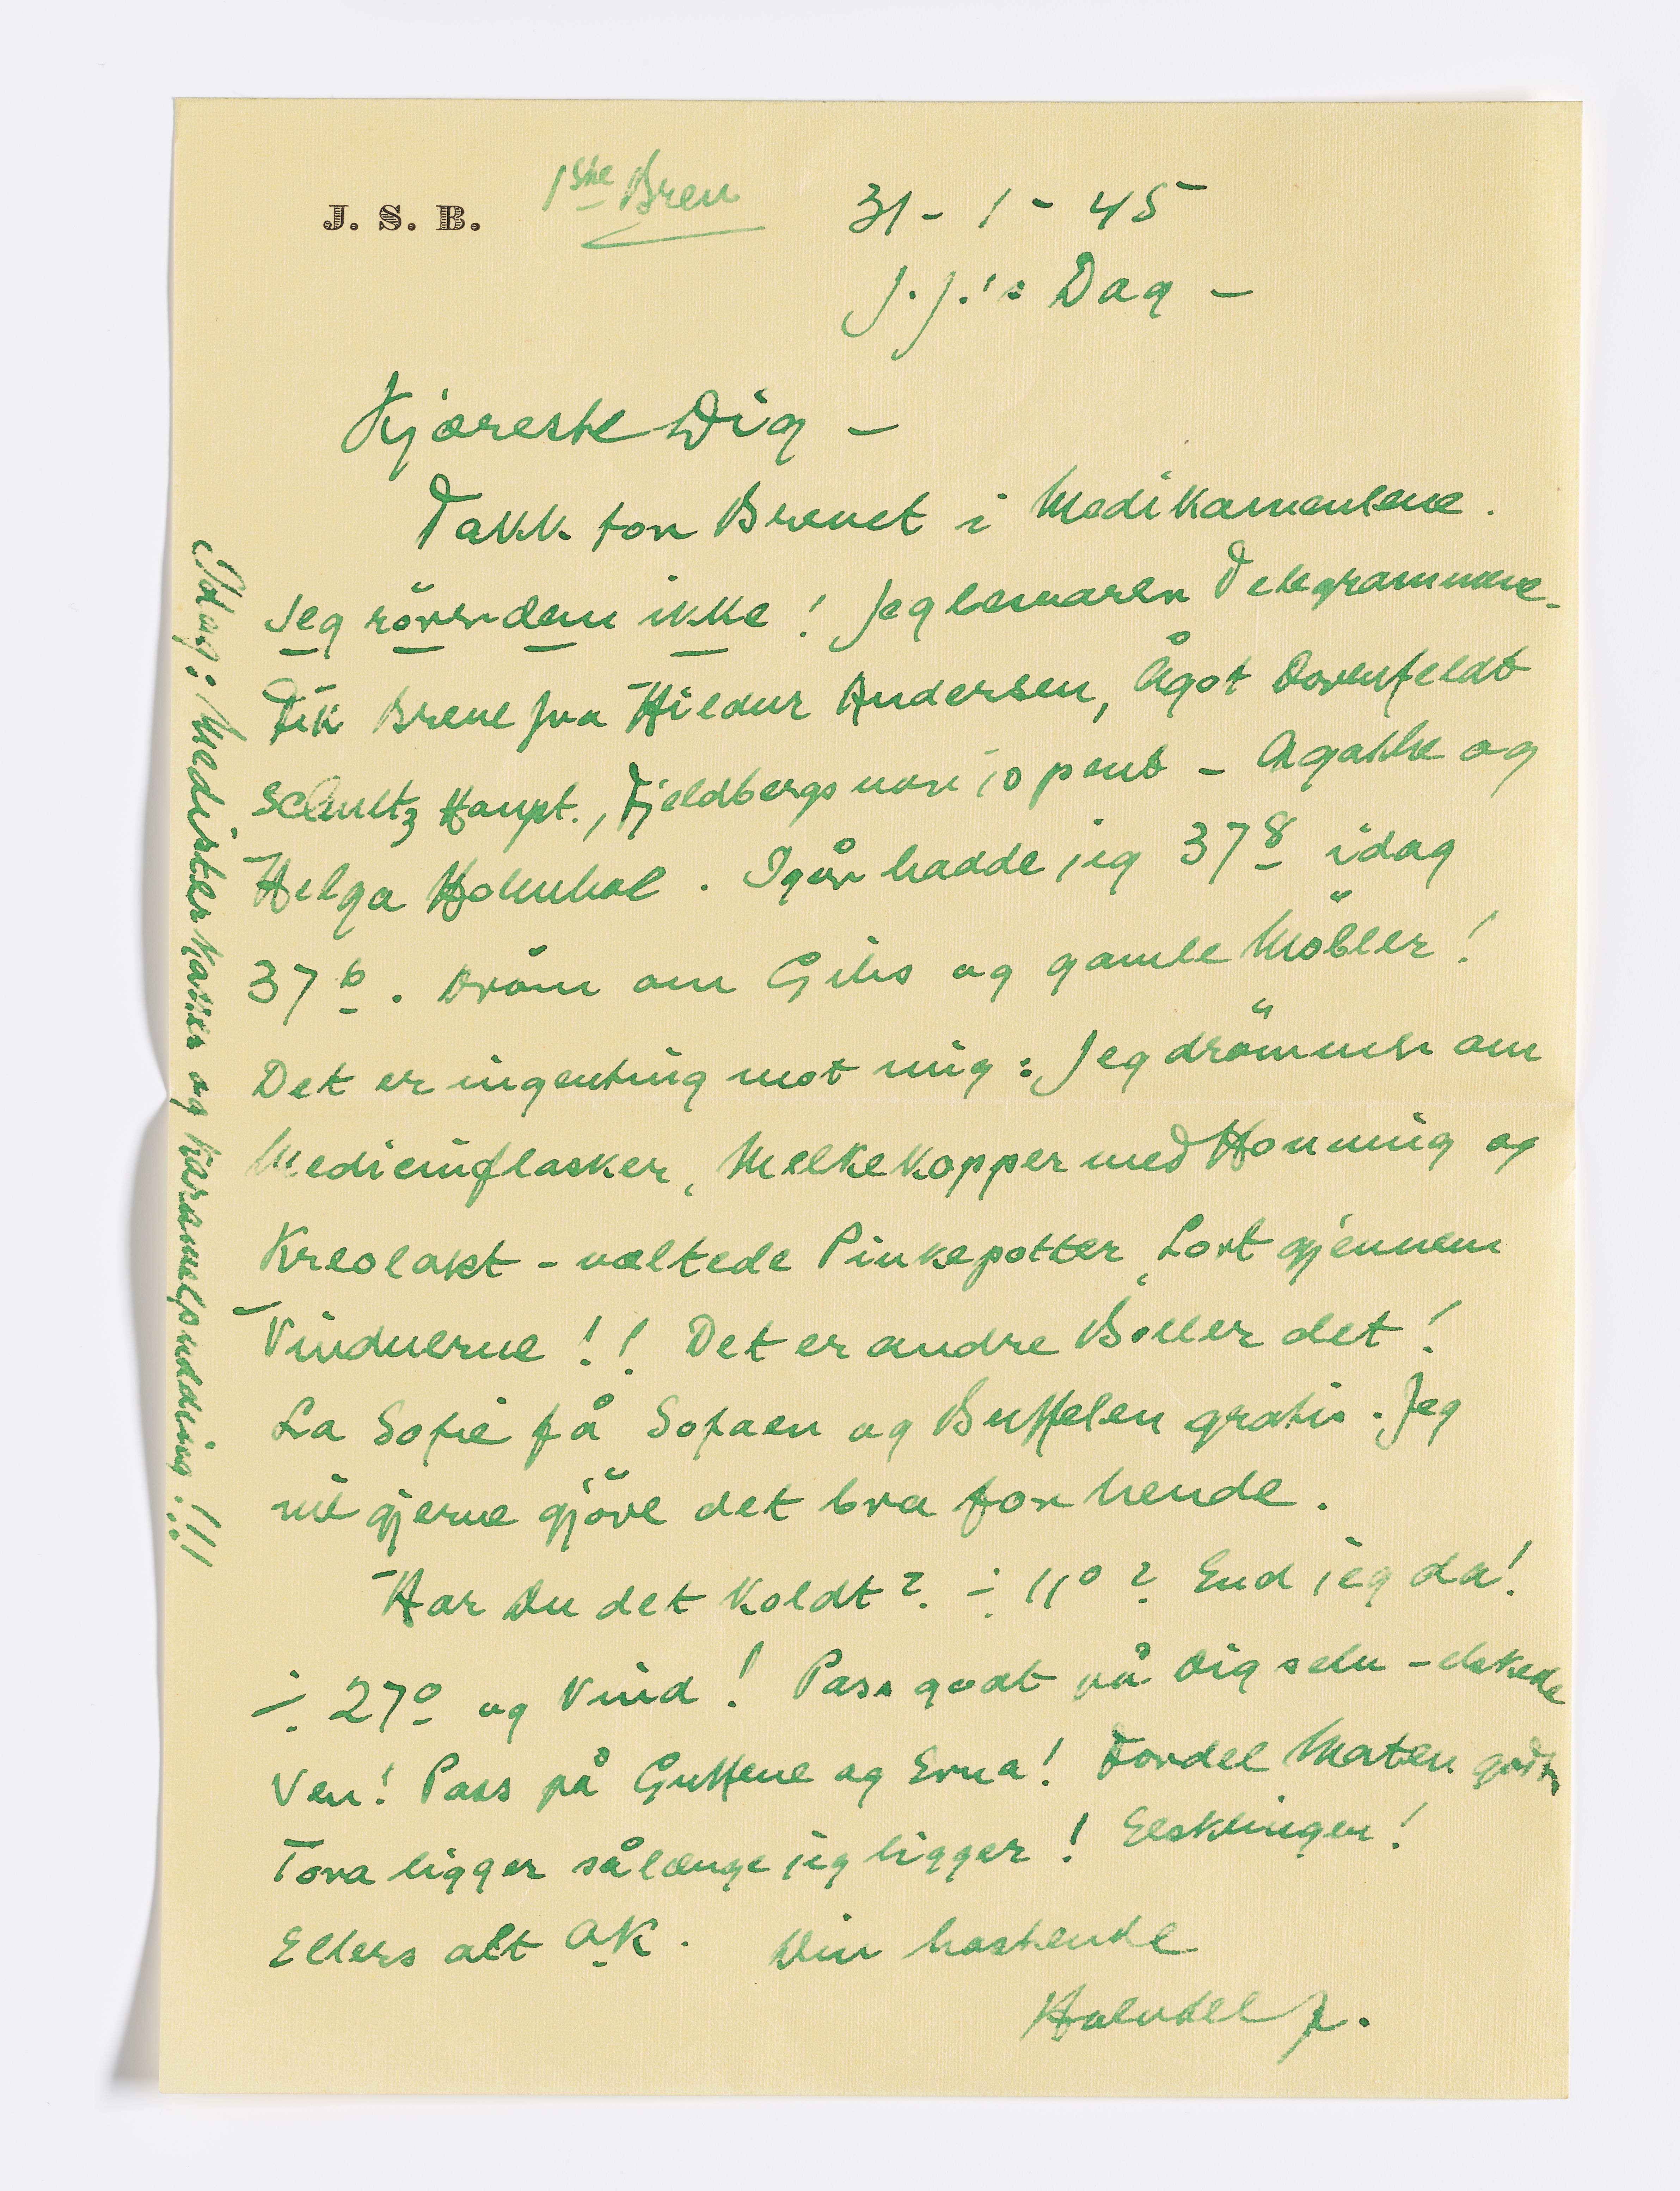 J. S. B.
1ste Brev
31 - 1 - 45
J. J.'s Dag -
Kjæreste Dig -
Takk for Brevet i Medikamentene.
Jeg rörer dem ikke! Jeg besvarer Telegrammene.
Fik Breve fra Hildur Andersen, Ågot Dovenfeldt
Schultz Haupt., Fjeldbergs pent - Agathe og
Helga . Igår hadde jeg 37⁸ idag
37⁶. Dröm om Gibs og gamle Möbler!
Det er ingenting mot mig: Jeg drömmer om
Medicinflasker, Melkekopper med Honning og
Kreolakt - væltede Pinkepotter, Lort gjennem
Vinduerne!! Det er andre Boller det!
La Sofie få Sofaen og Buffeten gratis. Jeg
vil gjerne gjöre det bra for hende.
Har Du det koldt? ÷ 11° ? End jeg da!
÷ 27° og Vind! Pass godt på Dig selv - elskede
Ven! Pass på Guttene og Erna! Fordel Maten godt.
Tora ligger sålænge jeg ligger! Elsklingen!
Ellers alt OK. Din hostende
Halvdel J.
Idag: Medisterkaker og Karamelpudding!!!